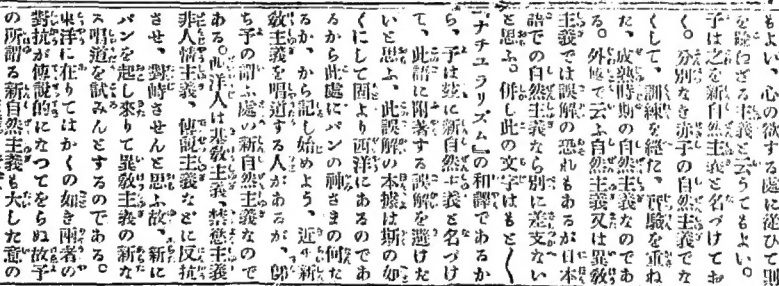 もよい、心の欲する處に從ひて則
を踰えざる主義と云うてもよい。
予は之を新自然主義と名づけてお
く。分別なき赤子の自然主義でな
くして、訓練を經た、經驗を重ね
た、成熟時期の自然主義なのであ
る。外國で云ふ自然主義又は異敎
主義では誤解の恐れもあるが日本
語での自然主義なら別に差支ない
と思ふ。併し此の文字はもと〱
『ナチユラリズム』の和譯であるか
ら、予は玆に新自然主義と名づけ
て、此語に附著する誤解を避けた
いと思ふ、此誤解の本據は斯の如
くにして固より西洋にあるのであ
るから此處にパンの神さまの何た
るか、から記し始めよう、近年新
敎主義を唱道する人があるが、卽
ち予の謂ふ處の新自然主義なので
ある。西洋人は基敎主義、禁慾主義
非人情主義、傳說主義などに反抗
させ、對峙させんと思ふ故、新に
パンを起し來りて異敎主義の新な
る唱道を試みんとするのである。
東洋に在りてはかくの如き兩者の
對抗が傳說的になつてをらぬ故予
の所謂る新自然主義も大した意の